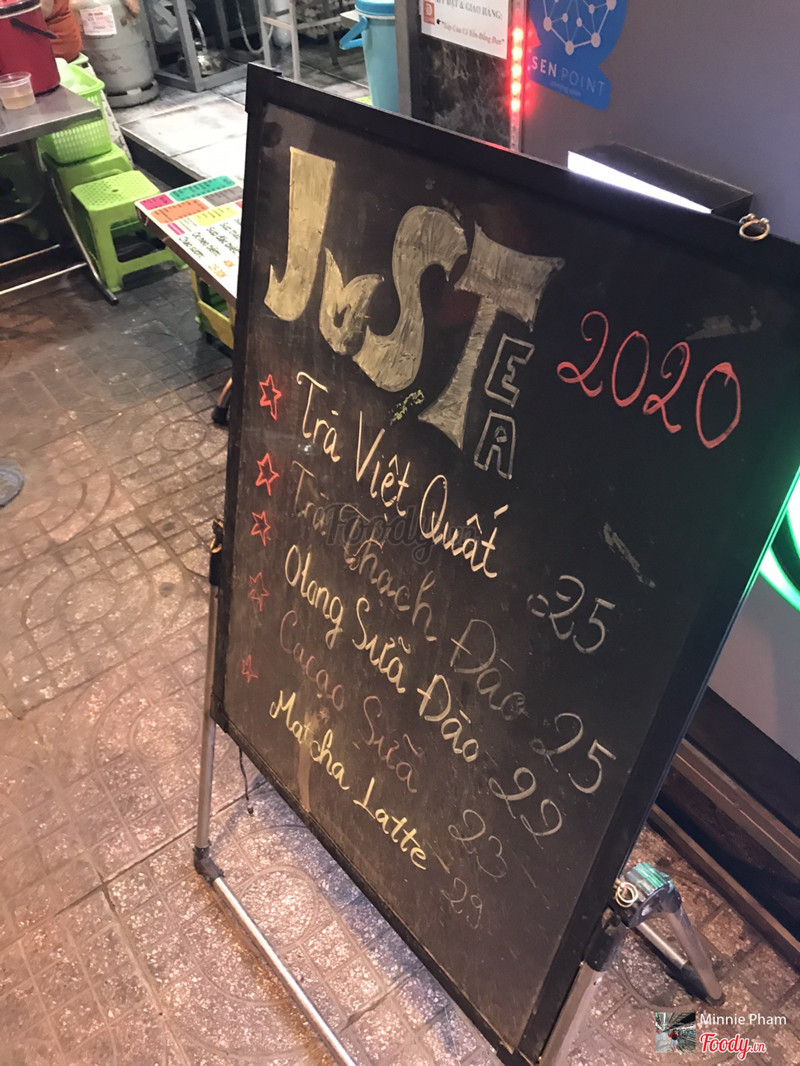 SEN POINT
JUST TEA 2020
Trà Việt Quất 25
Trà Thạch Đào 25
Olong Sữa Đào 22
Cacao Sữa 23
Matcha Latte 29
Foody.vn
Minnie Pham
Foody.vn